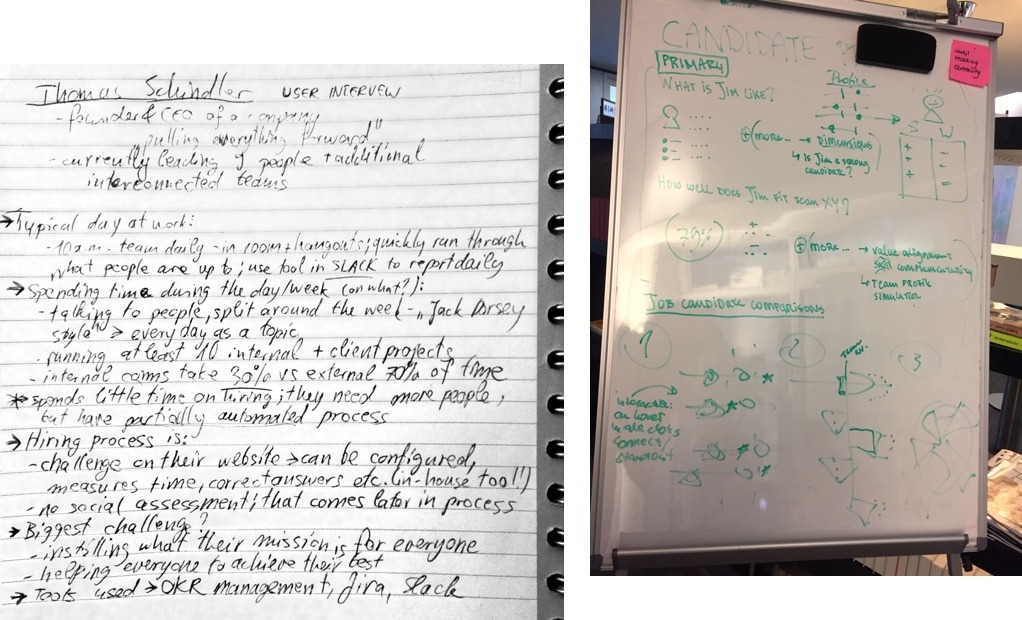 Thomas Schindler USER INTERVIEW
- founder & CEO of a company
"pulling everything forward"
- currently leading 9 people + additional
interconnected teams
→ Typical day at work:
- 10 a.m. team daily - in room + hangouts; quickly run through
what people are up to; use tool in SLACK to report daily
→ Spending time during the day/week (on what?):
- talking to people, split around the week - „Jack Dorsey
style" > every day as a topic
- running at least 10 internal + client projects
- internal comms take 30% vs external 70% of time
* spends little time on hiring; they need more people,
but have partially automated process
→ Hiring process is:
- challenge on their website > can be configured,
measures time, correct answers etc. (in-house tool!!)
- no social assessment; that comes later in process
→ Biggest challenge?
- instilling what their mission is for everyone
- helping everyone to achieve their best
→ Tools used → OKR management, Jira, Slack
CANDIDATE
PRIMARY
WHAT IS JIM LIKE?
Profile
S W
+ (more... → DIMENSIONS
↳ IS JIM A STRONG
CANDIDATE?
HOW WELL DOES JIM FIT TEAM XY?
79%
+ more... → VALUE ALIGNMENT
SKILL COMPLEMENTARITY
↳ TEAM PROFILE
SIMULATION
JOB CANDIDATE COMPARISONS
1 2 3
INTERACTION:
ON HOVER
MAKE DOTS
CONNECT/
STANDOUT